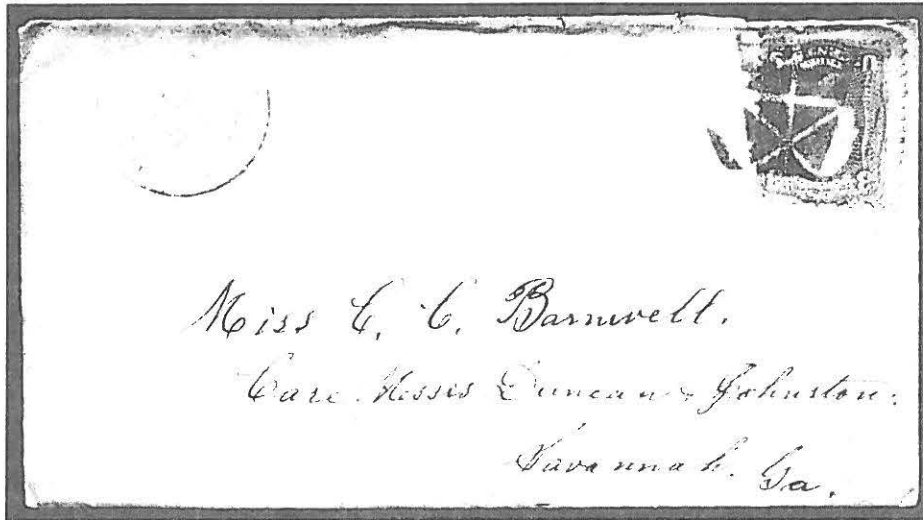 Miss C. C. Barnwell.
Care Messrs Duncan & Johnston.
Savannah. Ga.